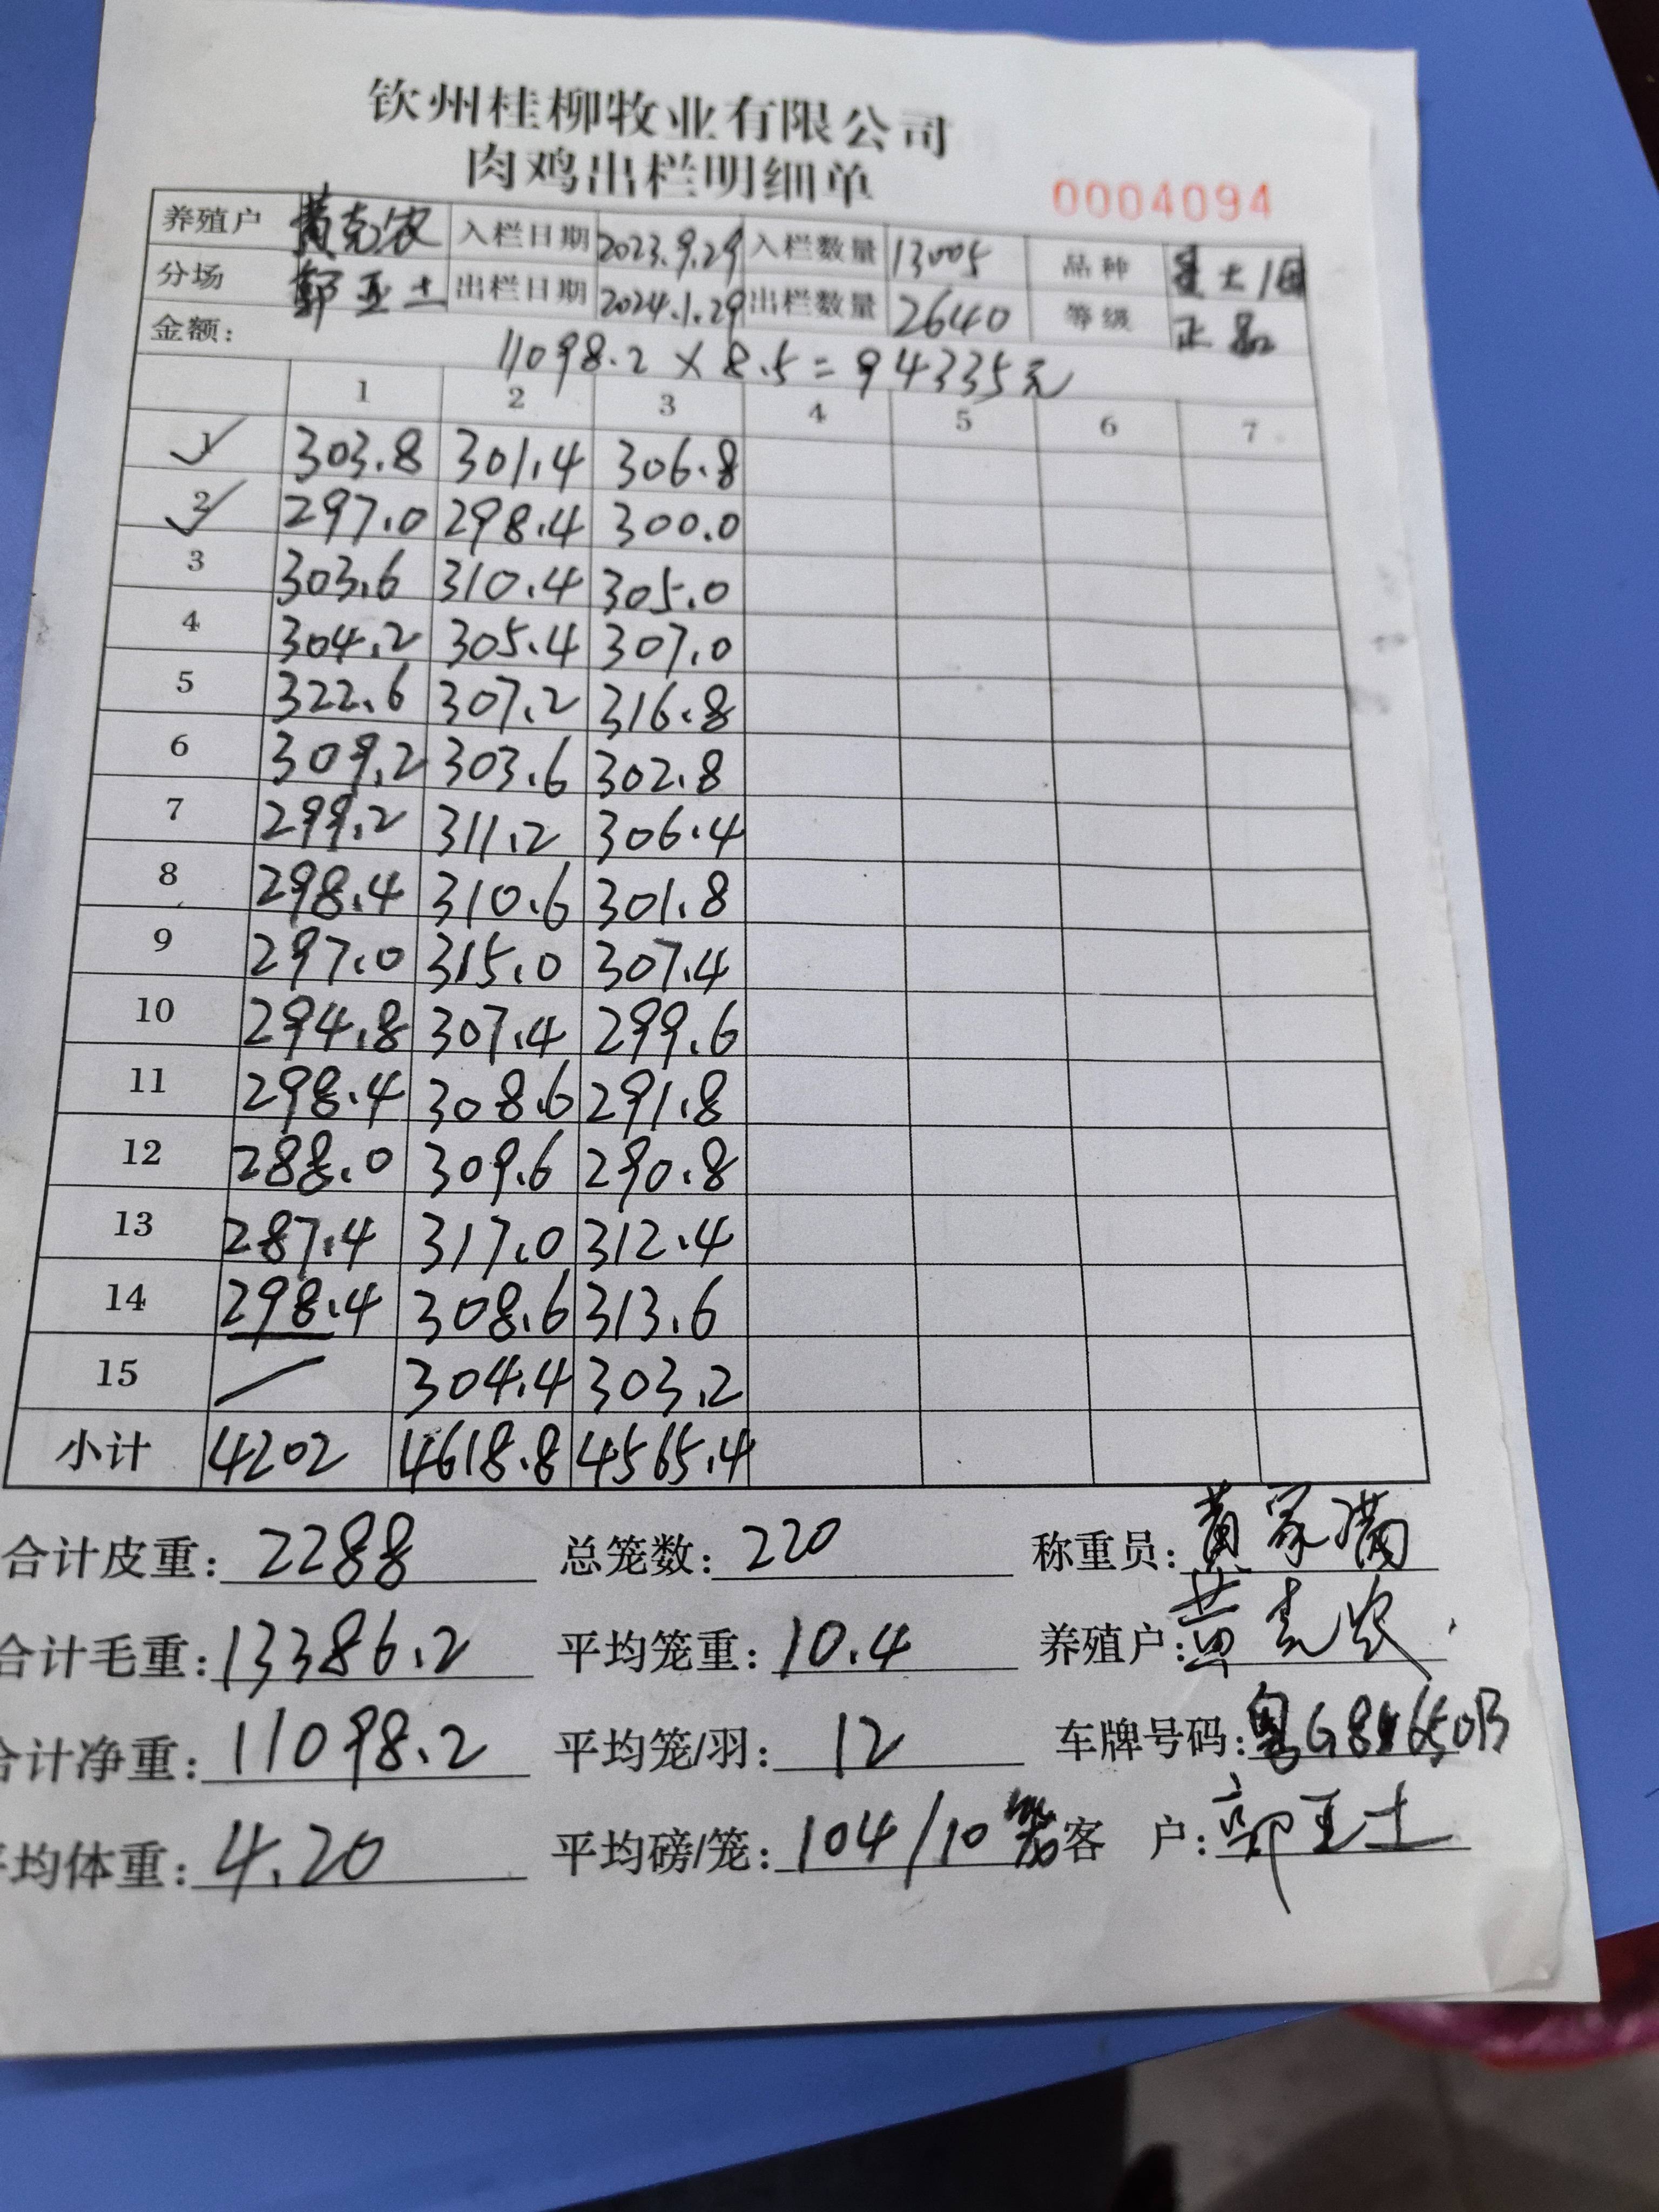 钦州桂柳牧业有限公司
肉鸡出栏明细单
0004094
养殖户 黄克农 入栏日期 2023.9.29 入栏数量 13005 品种
分场 郭亚士 出栏日期 2024.1.29 出栏数量 2640 等级 正品
金额: 11098.2 × 8.5 = 94335元
1 2 3 4 5 6 7
1 303.8 301.4 306.8
2 297.0 298.4 300.0
3 303.6 310.4 305.0
4 304.2 305.4 307.0
5 322.6 307.2 316.8
6 309.2 303.6 302.8
7 299.2 311.2 306.4
8 298.4 310.6 301.8
9 297.0 315.0 307.4
10 294.8 307.4 299.6
11 298.4 308.6 291.8
12 288.0 309.6 290.8
13 287.4 317.0 312.4
14 298.4 308.6 313.6
15 / 304.4 303.2
小计 4202 4618.8 4565.4
合计皮重: 2288 总笼数: 220 称重员: 黄家满
合计毛重: 13386.2 平均笼重: 10.4 养殖户: 黄克农
合计净重: 11098.2 平均笼/羽: 12 车牌号码:
平均体重: 4.20 平均磅/笼: 104/10 客 户: 郭亚士